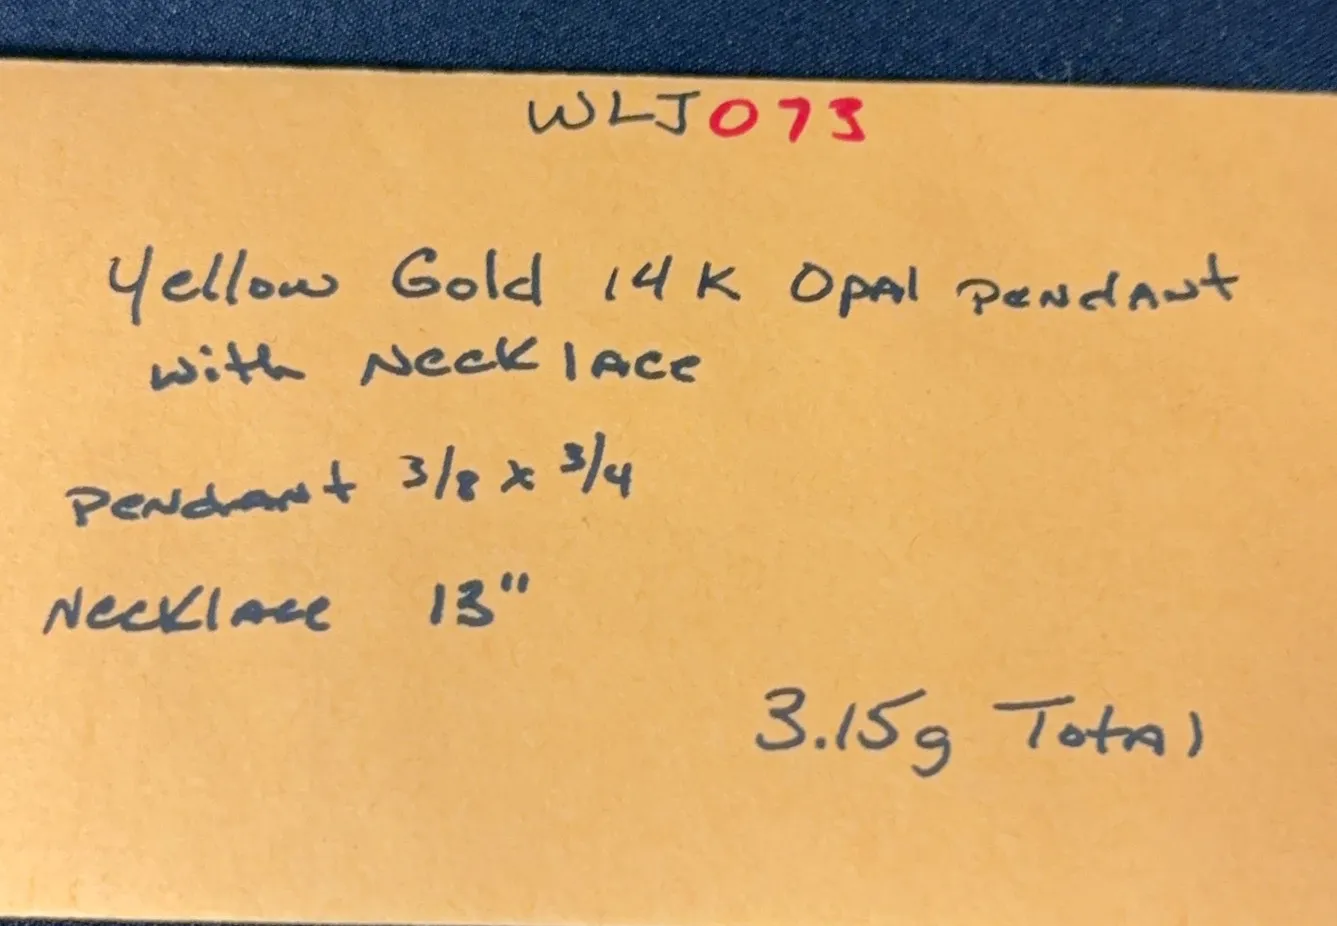 WLJ073
Yellow Gold 14K Opal Pendant
with Necklace
Pendant 3/8 x 3/4
Necklace 13"
3.15g Total